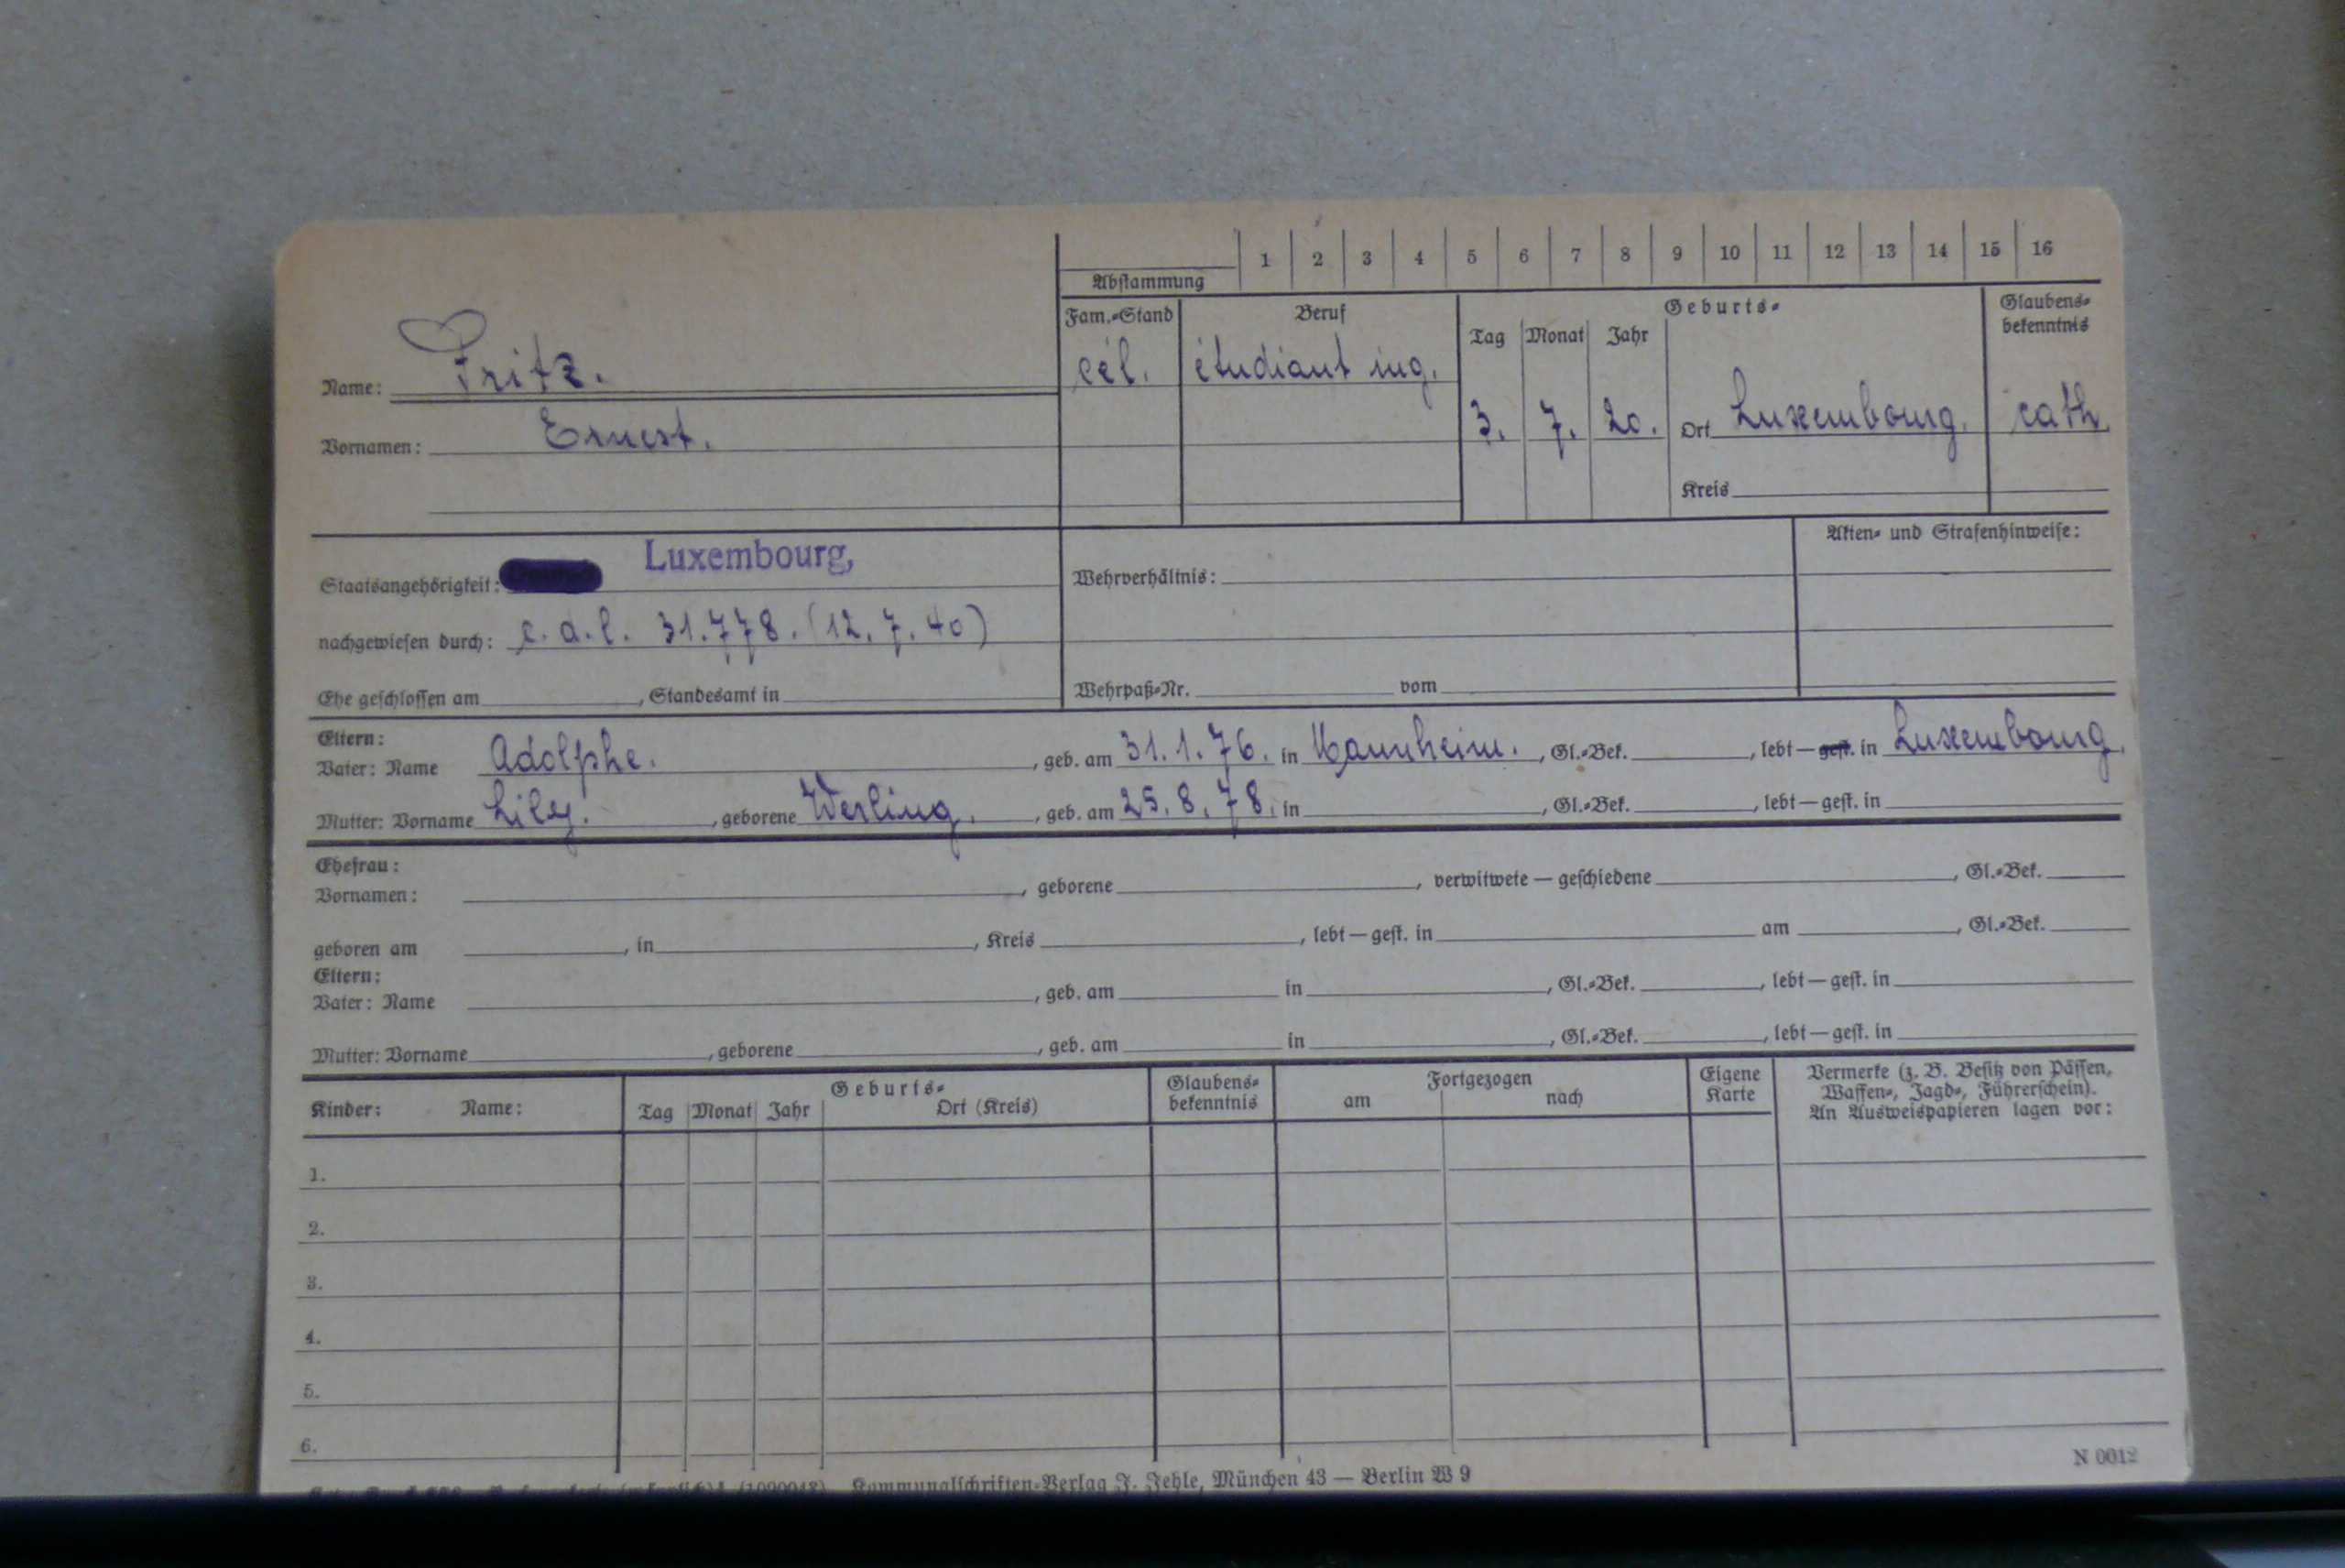 1 2 3 4 5 6 7 8 9 10 11 12 13 14 15 16
Abstammung
Fam.-Stand Beruf Geburts- Glaubens-
Tag Monat Jahr bekenntnis
Name: Fritz. cél. étudiant ing.
Vornamen: Ernest. 3. 7. 20. Ort Luxembourg. cath
Kreis
Akten- und Strafenhinweise:
Staatsangehörigkeit: Luxembourg, Wehrverhältnis:
nachgewiesen durch: c.d.l. 31.778. (12.7.40)
Ehe geschlossen am , Standesamt in Wehrpaß-Nr. vom
Eltern:
Vater: Name Adolphe. , geb. am 31.1.76. in Mannheim. , Gl.-Bek. , lebt — gest. in Luxembourg.
Mutter: Vorname Lily. , geborene Werling. , geb. am 25.8.78. in , Gl.-Bek. , lebt — gest. in
Ehefrau:
Vornamen: , geborene , verwitwete — geschiedene , Gl.-Bek.
geboren am , in , Kreis , lebt — gest. in am , Gl.-Bek.
Eltern:
Vater: Name , geb. am in , Gl.-Bek. , lebt — gest. in
Mutter: Vorname , geborene , geb. am in , Gl.-Bek. , lebt — gest. in
Kinder: Name: Geburts- Glaubens- Fortgezogen Eigene Vermerke (z. B. Besitz von Pässen,
Tag Monat Jahr Ort (Kreis) bekenntnis am nach Karte Waffen-, Jagd-, Führerschein).
An Ausweispapieren lagen vor:
1.
2.
3.
4.
5.
6.
N 0012
Kommunalschriften-Verlag J. Jehle, München 43 — Berlin W 9